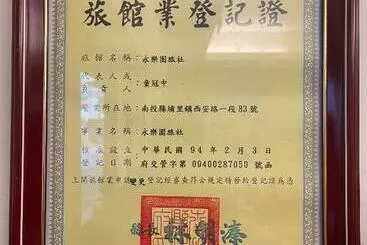 旅館業登記證
旅館名稱：永樂園旅社
代表人或
負責人：童冠中
營業所在地：南投縣埔里鎮西安路一段83號
事業名稱：永樂園旅社
核准設立
登記日期：中華民國94年2月3日
府交管字第09400287050號函
上開旅館業申請變更登記經審查符合規定特發給登記證為憑
縣長